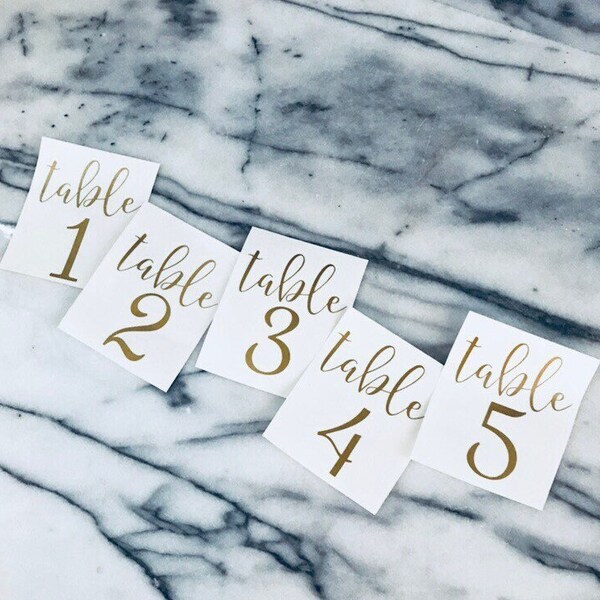 table
1
table
2
table
3
table
4
table
5